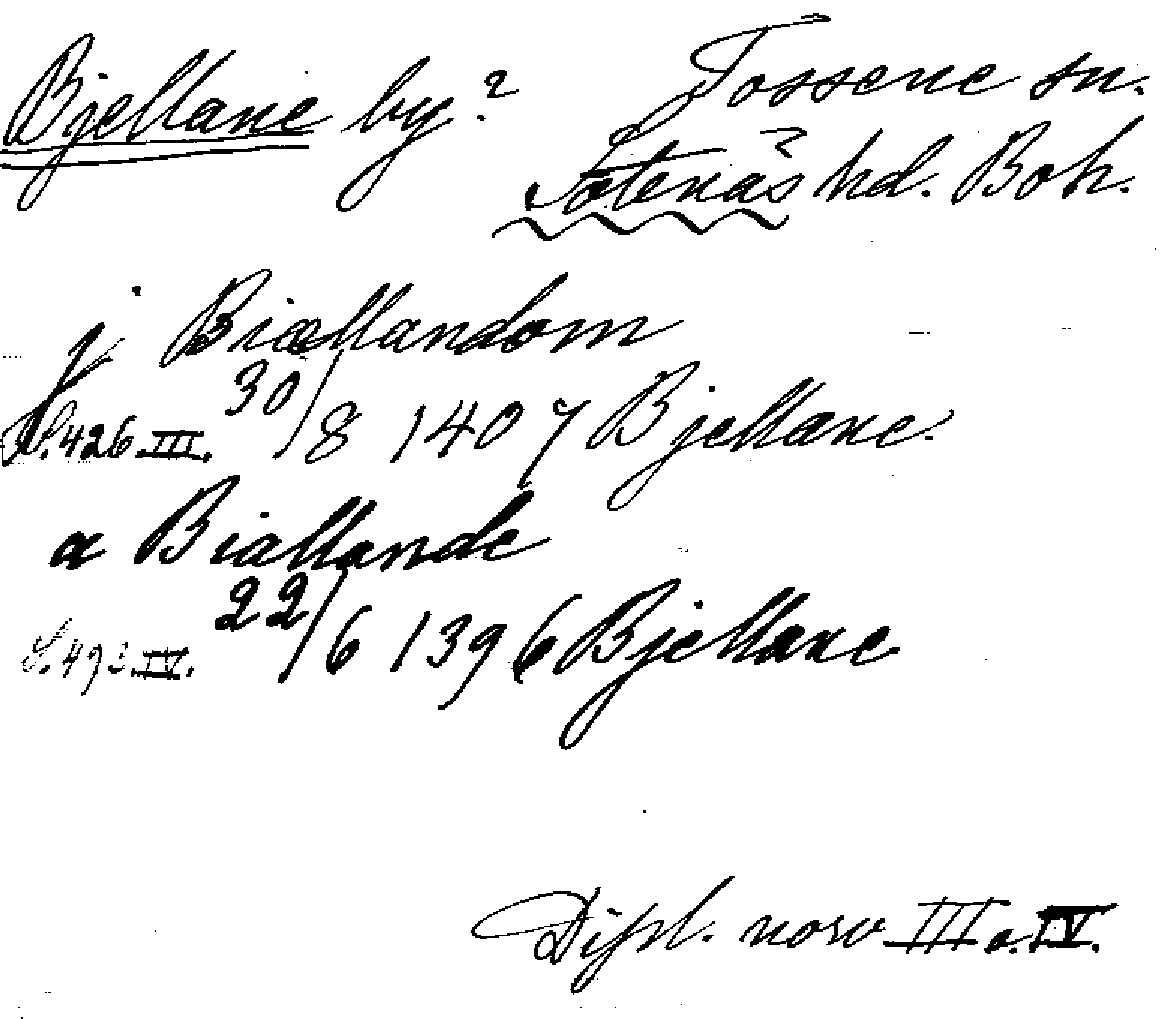 Bjellane by? Tossene sn.
Sotenäs hd. Boh.
j Biællandom
S. 426 III. 30/8 1407 Bjellane.
a Biallande
S. 493 IV. 22/6 1396 Bjellane
Dipl. norv III o. IV.